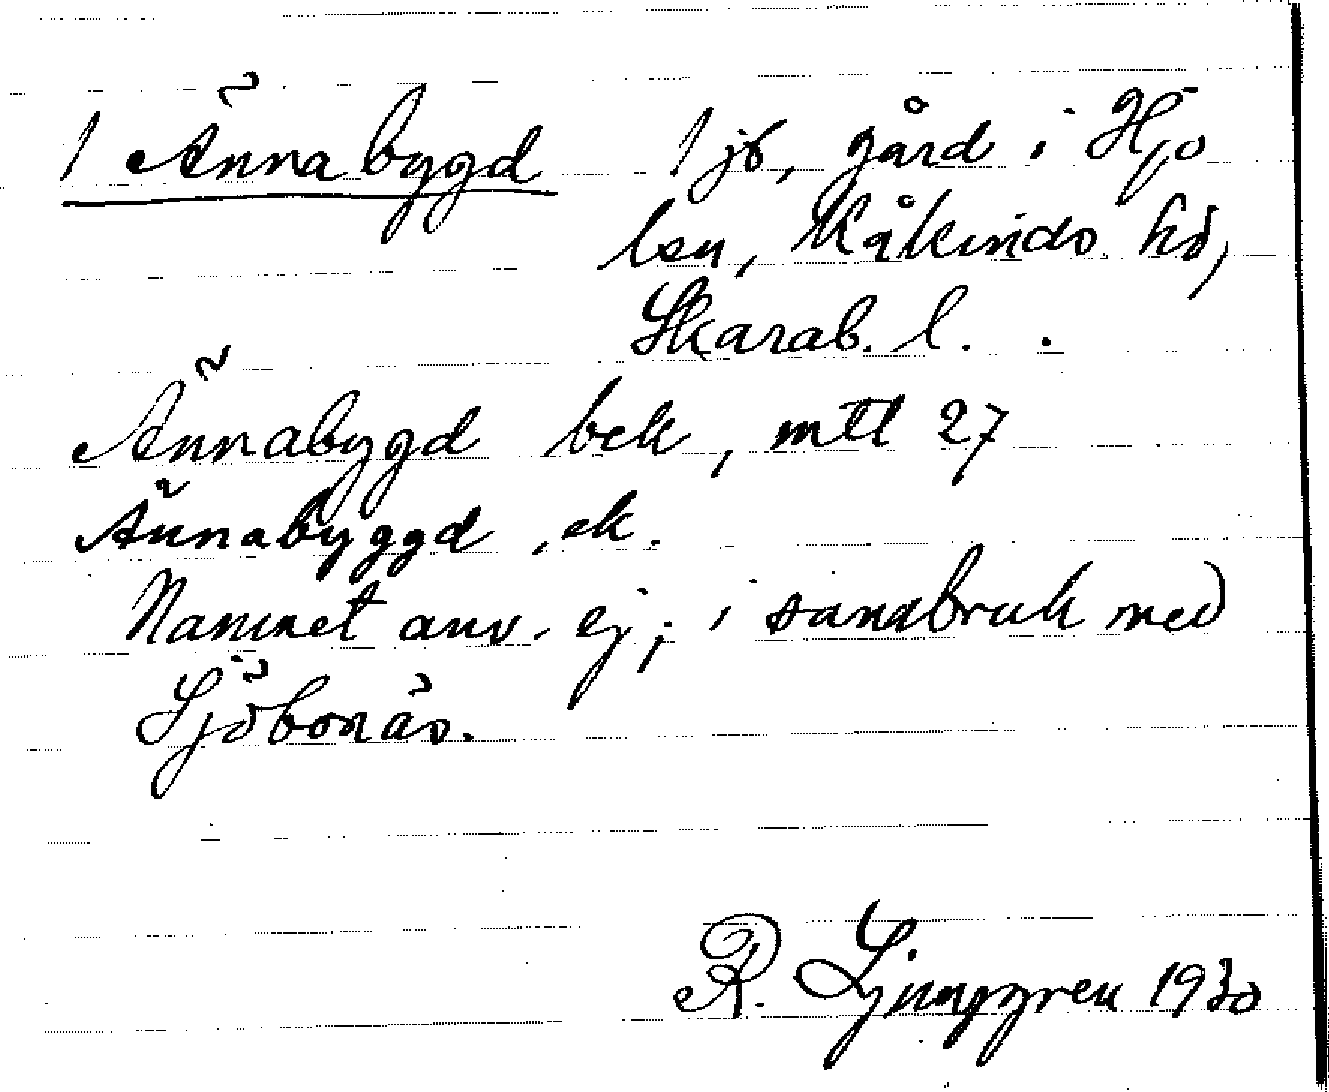 / Ännabygd /jb, gård i Hjo
lsn, Kåkinds hd,
Skarab. l.
Ännabygd bek, mtl 27
Ännabyggd, ek.
Namnet anv. ej; i sambruk med
Sjöbonäs.
R. Ljunggren 1930